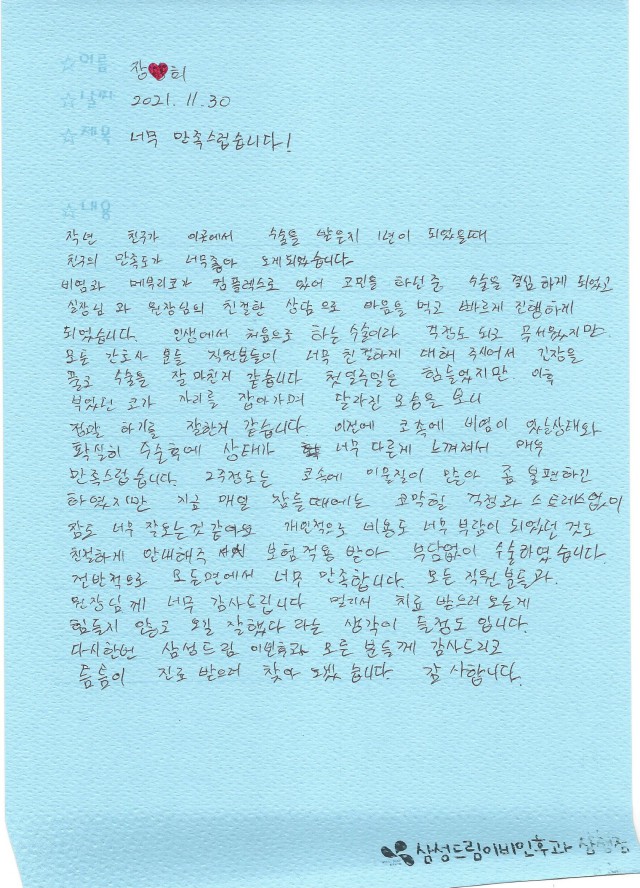 ☆이름 장♥희
☆날짜 2021.11.30
☆제목 너무 만족스럽습니다!
☆내용
작년 친구가 이곳에서 수술을 받은지 1년이 되었을때
친구의 만족도가 너무좋아 오게되었습니다.
비염과 메부리코가 컴플렉스로 있어 고민을 하던 중 수술을 결심하게 되었고
실장님과 원장님의 친절한 상담으로 마음을 먹고 빠르게 진행하게
되었습니다. 인생에서 처음으로 하는 수술이라 걱정도 되고 무서웠지만
모든 간호사 분들 직원분들이 너무 친절하게 대해 주셔서 긴장을
풀고 수술을 잘 마친거 같습니다 첫 일주일은 힘들었지만 이후
부었던 코가 자리를 잡아가며 달라진 모습을 보니
정말 하기를 잘한거 같습니다. 이전에 코 속에 비염이 있늘상태와
확실히 수술후에 상태가 너무 다른게 느껴져서 매우
만족스럽습니다. 2주정도는 코속에 이물질이 많아 좀 불편하긴
하였지만 지금 매일 잠들때에는 코막힐 걱정과 스트레스없이
잠도 너무 잘오는것 같아요 개인적으로 비용도 너무 부담이 되었던 것도
친절하게 안내해주셔서 보험적용 받아 부담없이 수술하였습니다.
전반적으로 모든면에서 너무 만족합니다. 모든 직원분들과.
원장님께 너무 감사드립니다 멀리서 치료 받으러 오는게
힘들지 않고 오길 잘했다 라는 생각이 들정도 입니다.
다시한번 삼성드림 이비인후과 모든 분들께 감사드리고
틈틈이 진료 받으러 찾아 오겠습니다. 감사합니다.
삼성드림이비인후과